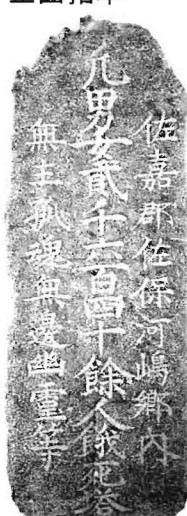 佐嘉郡佐保河嶋郷内
凡男女貳千三百四十餘人餓死塔
無主孤魂無邊幽霊等